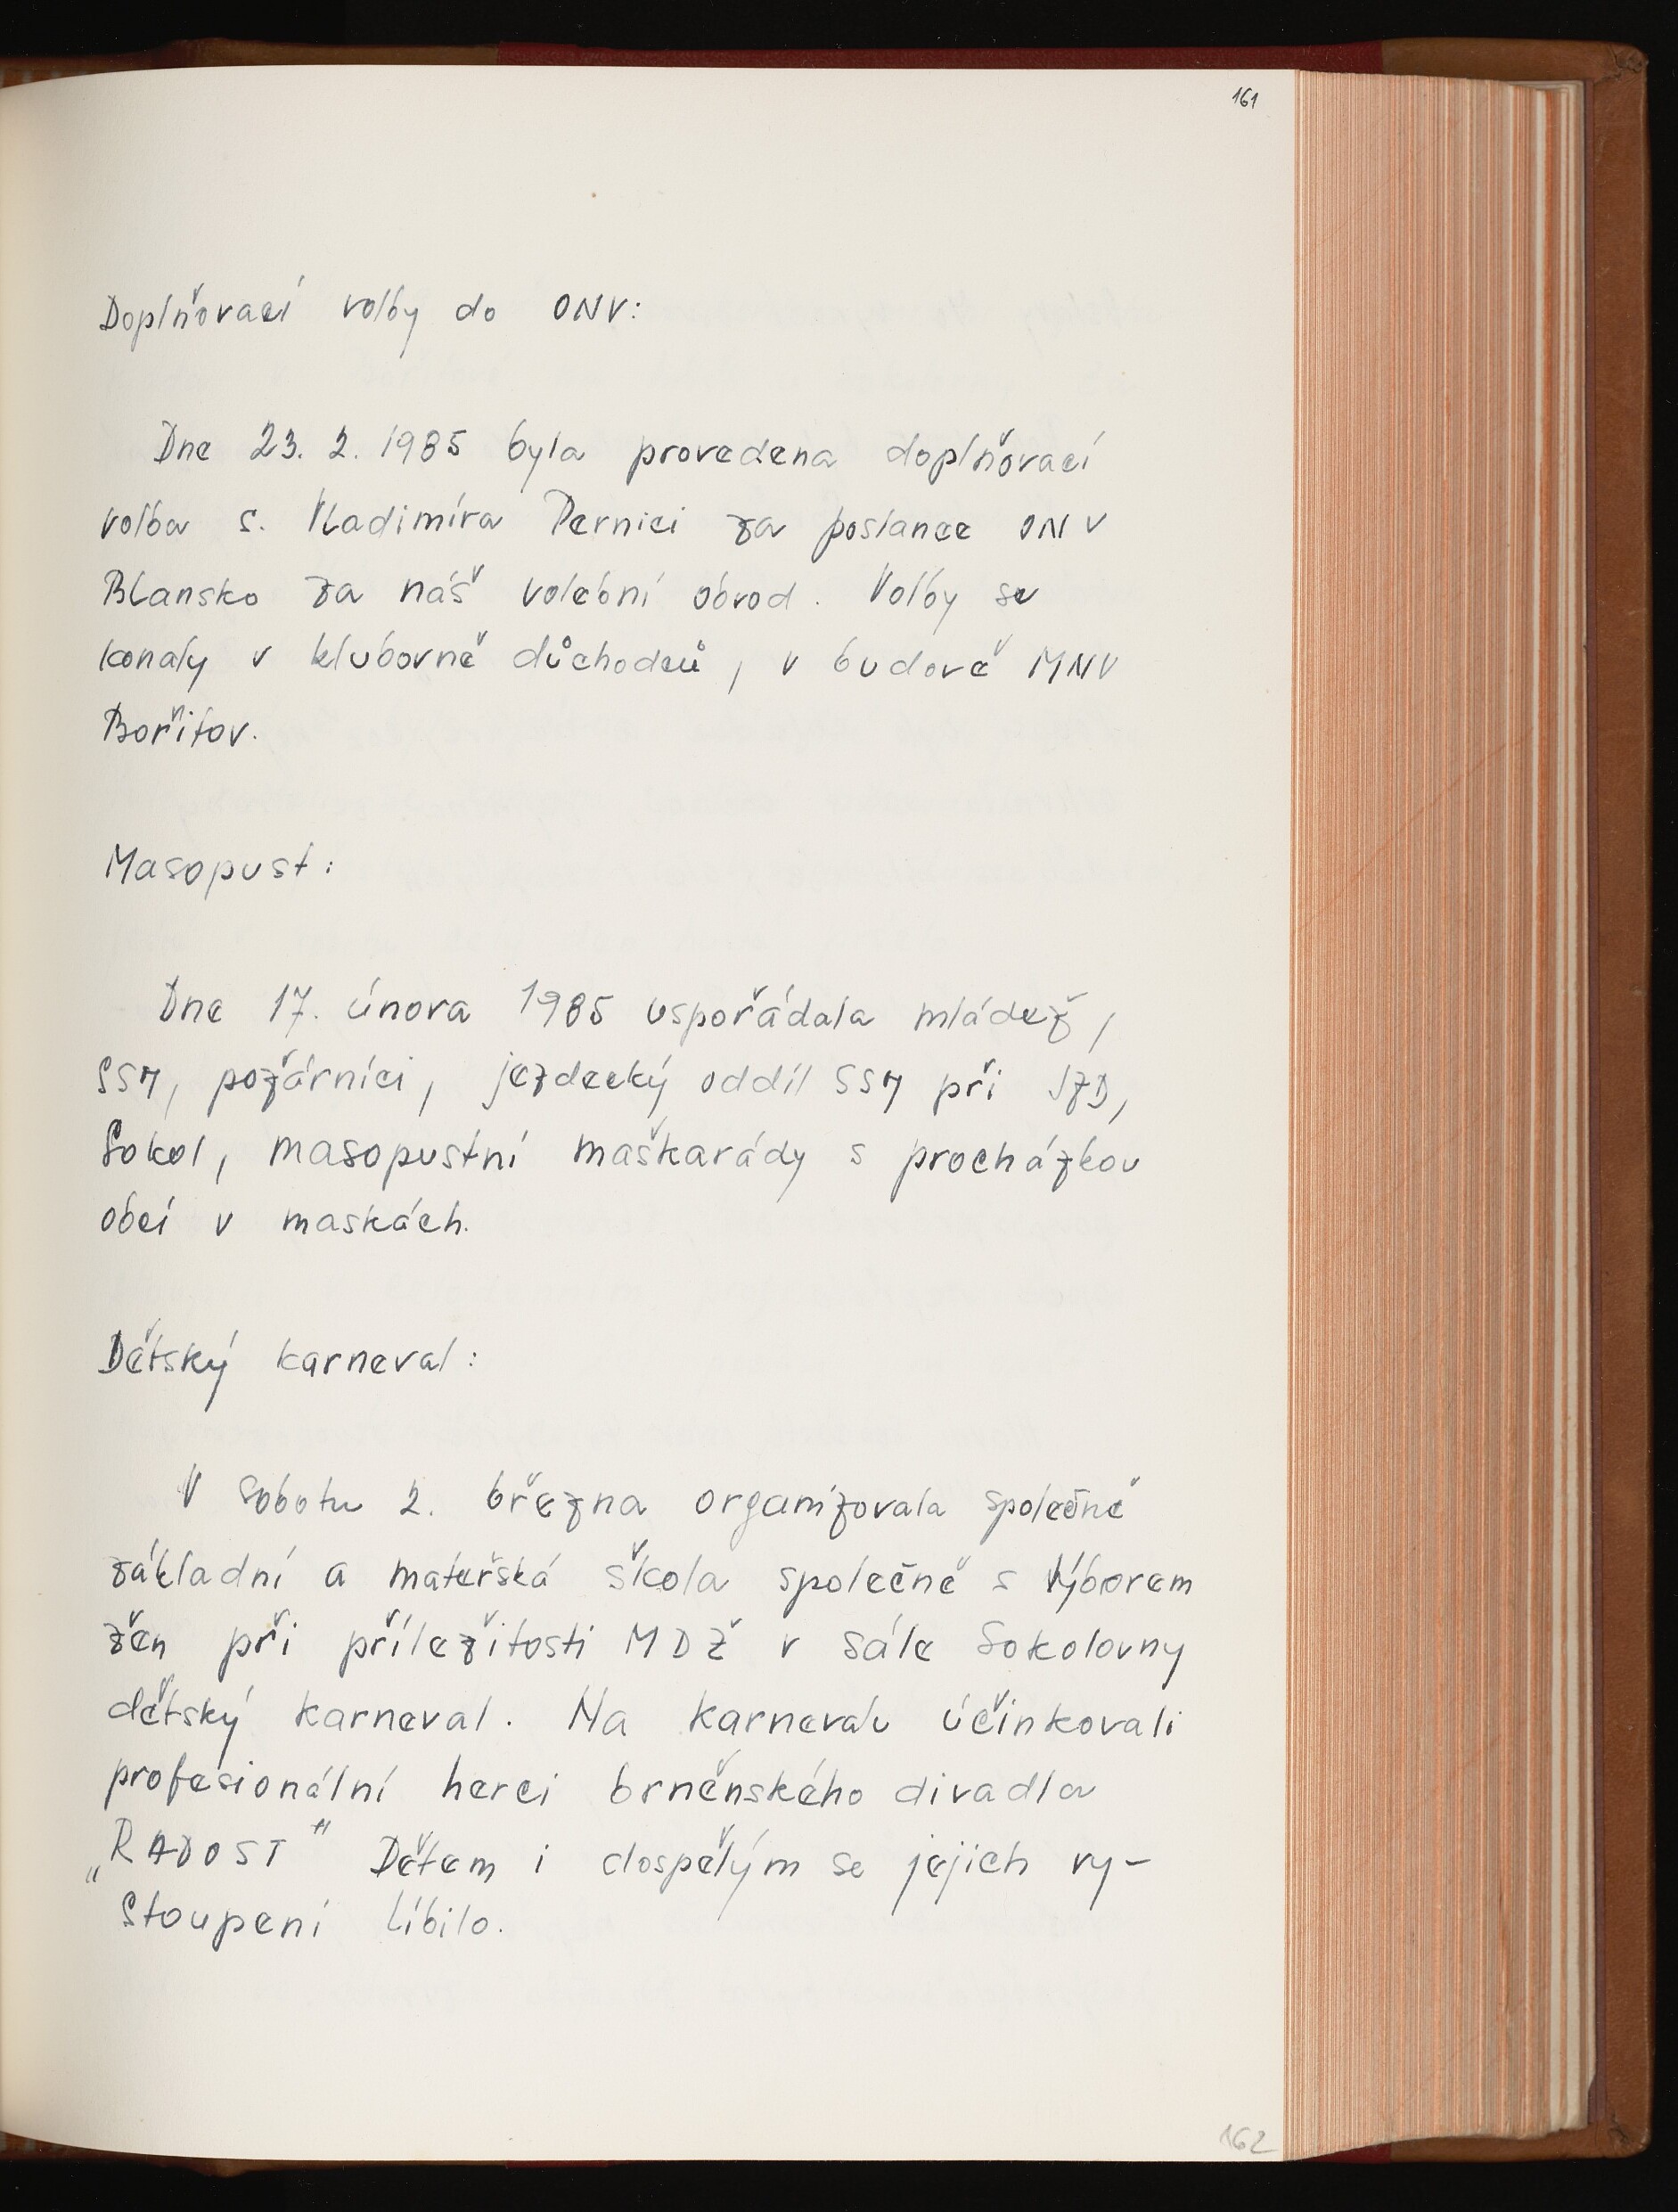 161
Doplňovací volby do ONV:
Dne 23. 2. 1985 byla provedena doplňovací
volba s. Vladimíra Pernici za poslance ONV
Blansko za náš volební obvod. Volby se
konaly v klubovně důchodců, v budově MNV
Bořitov.
Masopust:
Dne 17. února 1985 uspořádala mládež,
SSM, požárníci, jezdecký oddíl SSM při JZD,
Sokol, masopustní maškarády s procházkou
obcí v maskách.
Dětský karneval:
V sobotu 2. března organizovala společně
základní a mateřská škola společně s Výborem
žen při příležitosti MDŽ v sále Sokolovny
dětský karneval. Na karnevalu účinkovali
profesionální herci brněnského divadla
„RADOST" Dětem i dospělým se jejich vy-
stoupení líbilo.
162